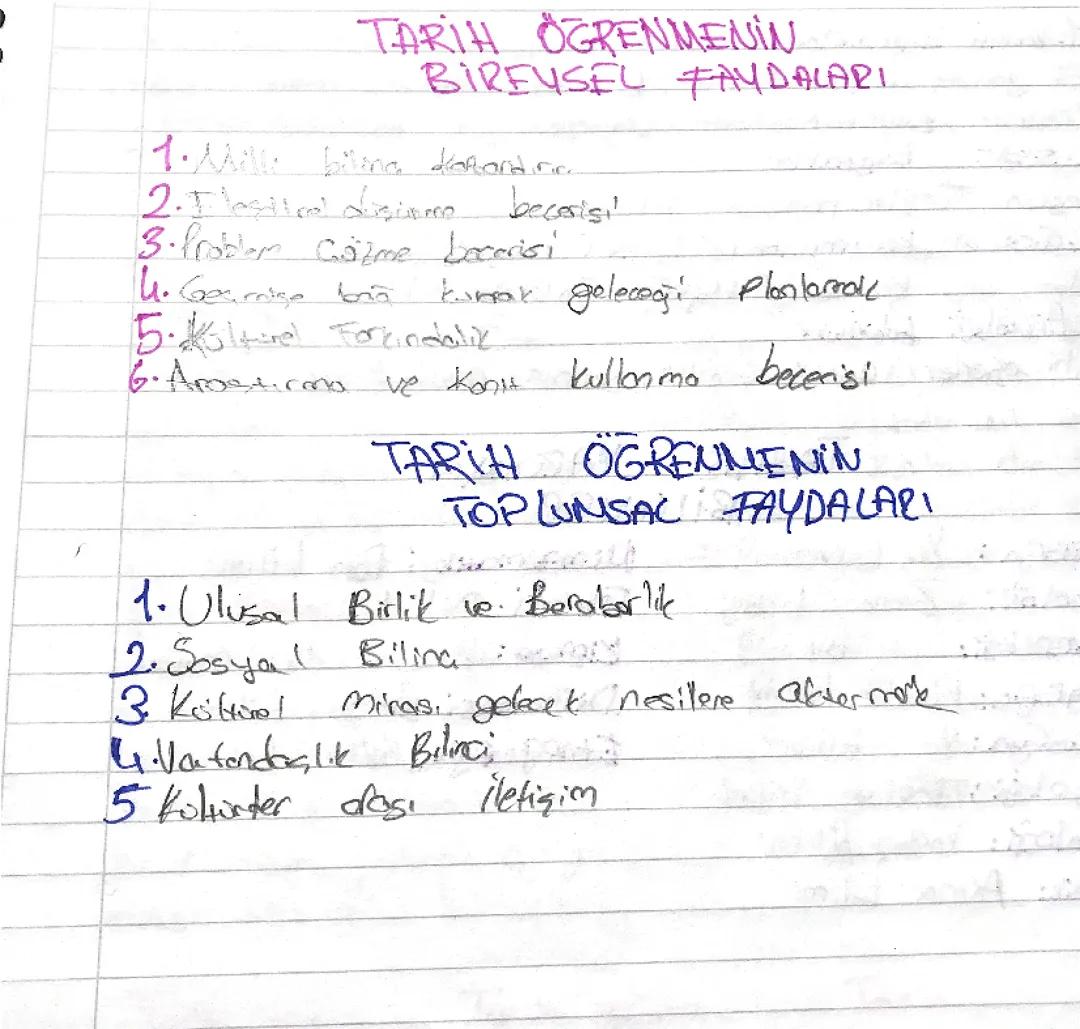 TARİH ÖĞRENMENİN
BİREYSEL FAYDALARI
1. Milli bilinç kazandırır.
2. Eleştirel düşünme becerisi
3. Problem Çözme becerisi
4. Geçmişe bağ kurarak geleceği Planlamak
5. Kültürel Farkındalık
6. Araştırma ve Kanıt kullanma becerisi
TARİH ÖĞRENMENİN
TOPLUMSAL FAYDALARI
1. Ulusal Birlik ve Beraberlik
2. Sosyal Bilinç
3 Kültürel Mirası gelecek nesillere aktarmak
4. Vatandaşlık Bilinci
5 Kültürler arası iletişim